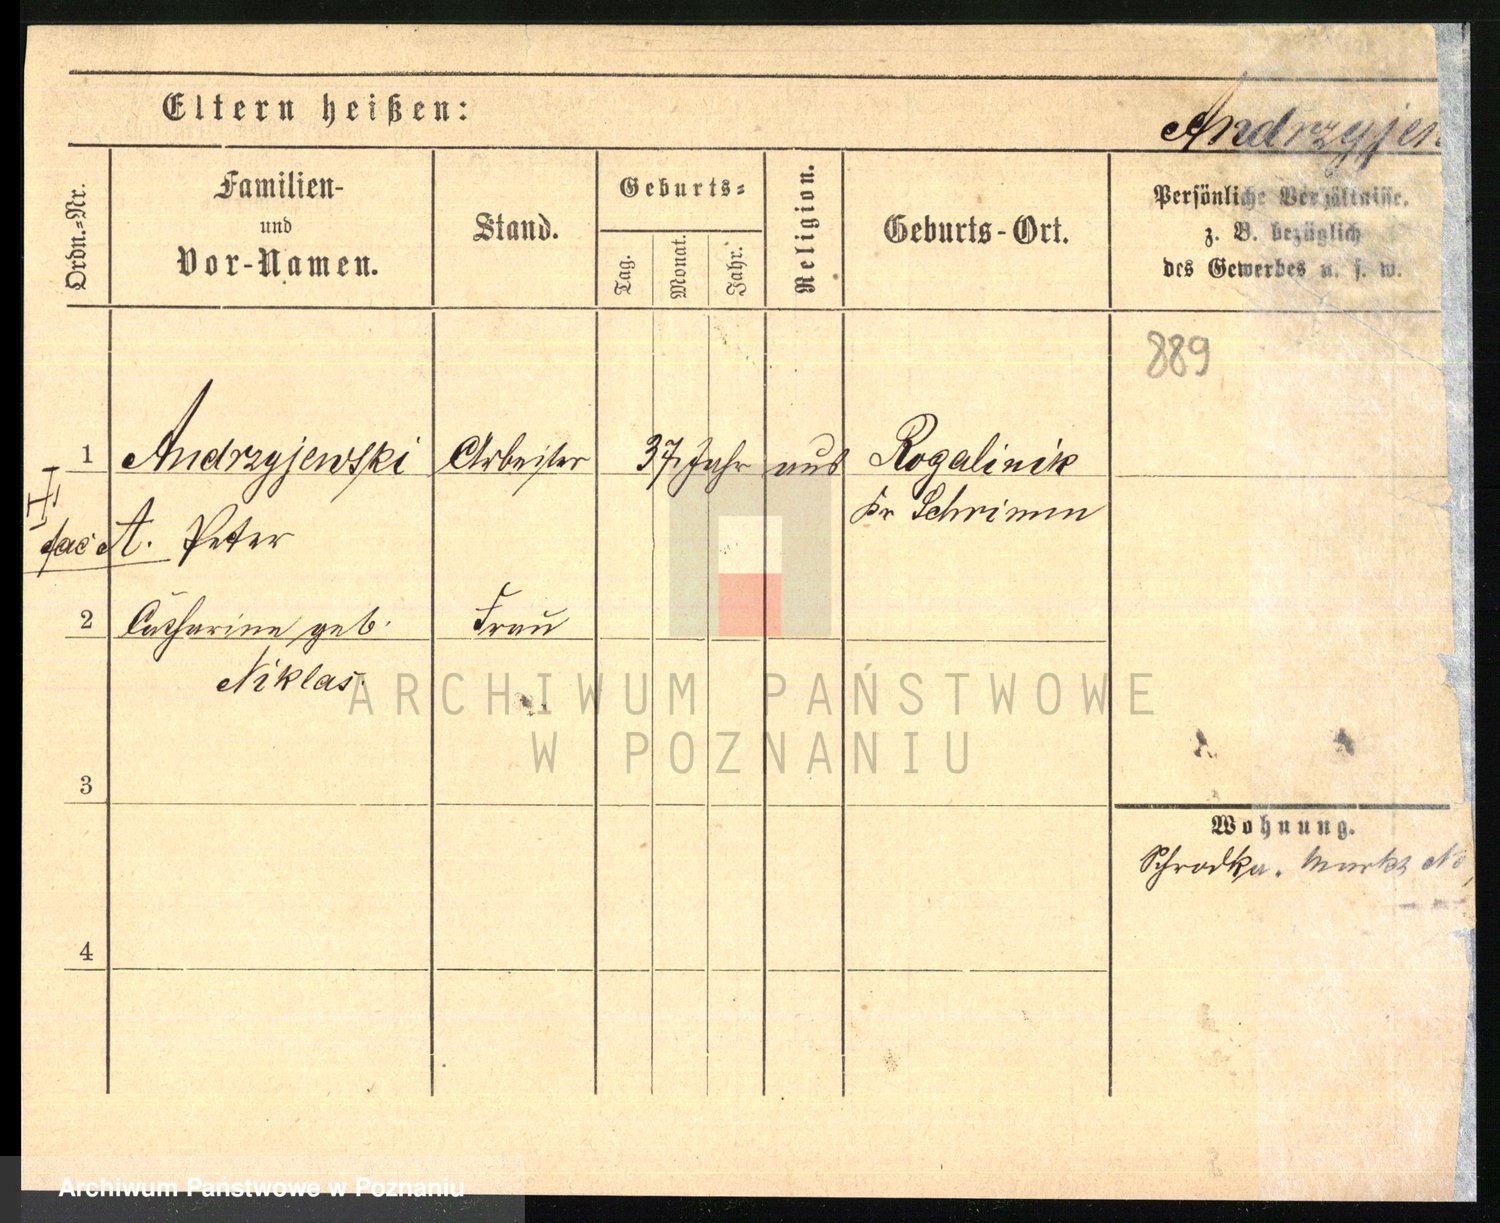 Eltern heißen:
Andrzyjew
Ordn.=Nr.
Familien-
und
Vor-Namen.
Stand.
Geburts=
Tag.
Monat.
Jahr.
Religion.
Geburts-Ort.
Persönliche Verhältnisse.
z. B. bezüglich
des Gewerbes u. s. w.
889
1 Andrzyjewski Arbeiter 37 Jahr aus Rogalinik
Kr Schrimm
A. Peter
2 Catharine geb. Frau
Niklas.
ARCHIWUM PAŃSTWOWE
W POZNANIU
3
Wohnung.
Schrodka. Markt No
4
Archiwum Państwowe w Poznaniu